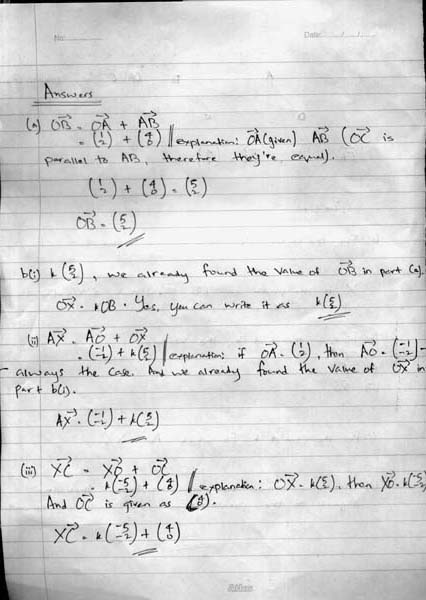 No:
Date: / /
Answers
(a) OB = OA + AB
= (1 2) + (4 0) || explanation: OA (given) AB (OC is
parallel to AB, therefore they're equal).
(1 2) + (4 0) = (5 2)
OB = (5 2)
b(i) k(5 2), we already found the value of OB in part (a).
OX = kOB. Yes, you can write it as k(5 2)
(ii) AX = AO + OX
= (-1 -2) + k(5 2) || explanation: if OA = (1 2), then AO = (-1 -2) -
- always the case. And we already found the value of OX in
part b(i).
AX = (-1 -2) + k(5 2)
(iii) XC = XO + OC
= k(-5 -2) + (4 0) || explanation: OX = k(5 2), then XO = k(-5 -2)
And OC is given as (4 0).
XC = k(-5 -2) + (4 0)